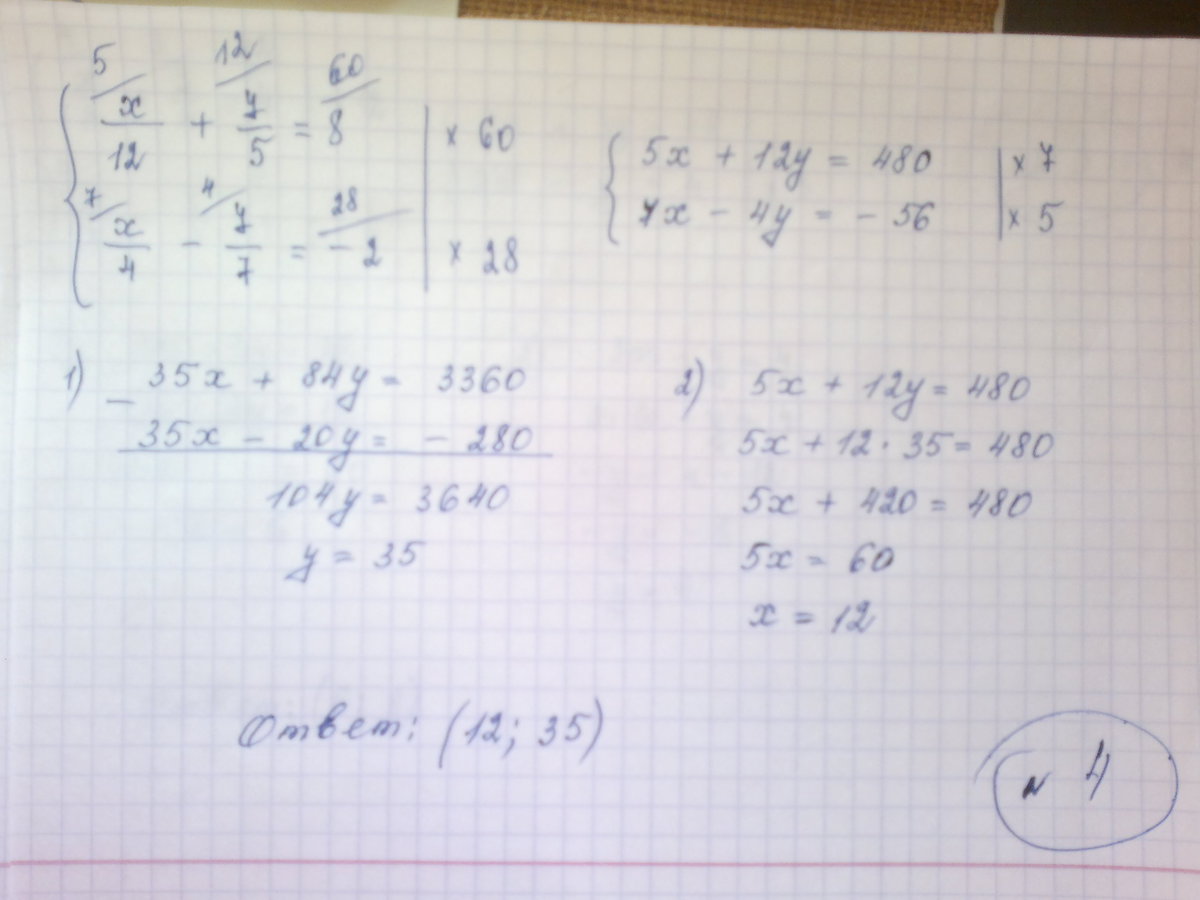 5/ 12/ 60/
x/12 + y/5 = 8 | × 60
7/ 4/ 28/
x/4 - y/7 = -2 | × 28
5x + 12y = 480 | × 7
7x - 4y = - 56 | × 5
1) 35x + 84y = 3360
- 35x - 20y = - 280
104y = 3640
y = 35
2) 5x + 12y = 480
5x + 12 · 35 = 480
5x + 420 = 480
5x = 60
x = 12
Ответ: (12; 35)
N 4